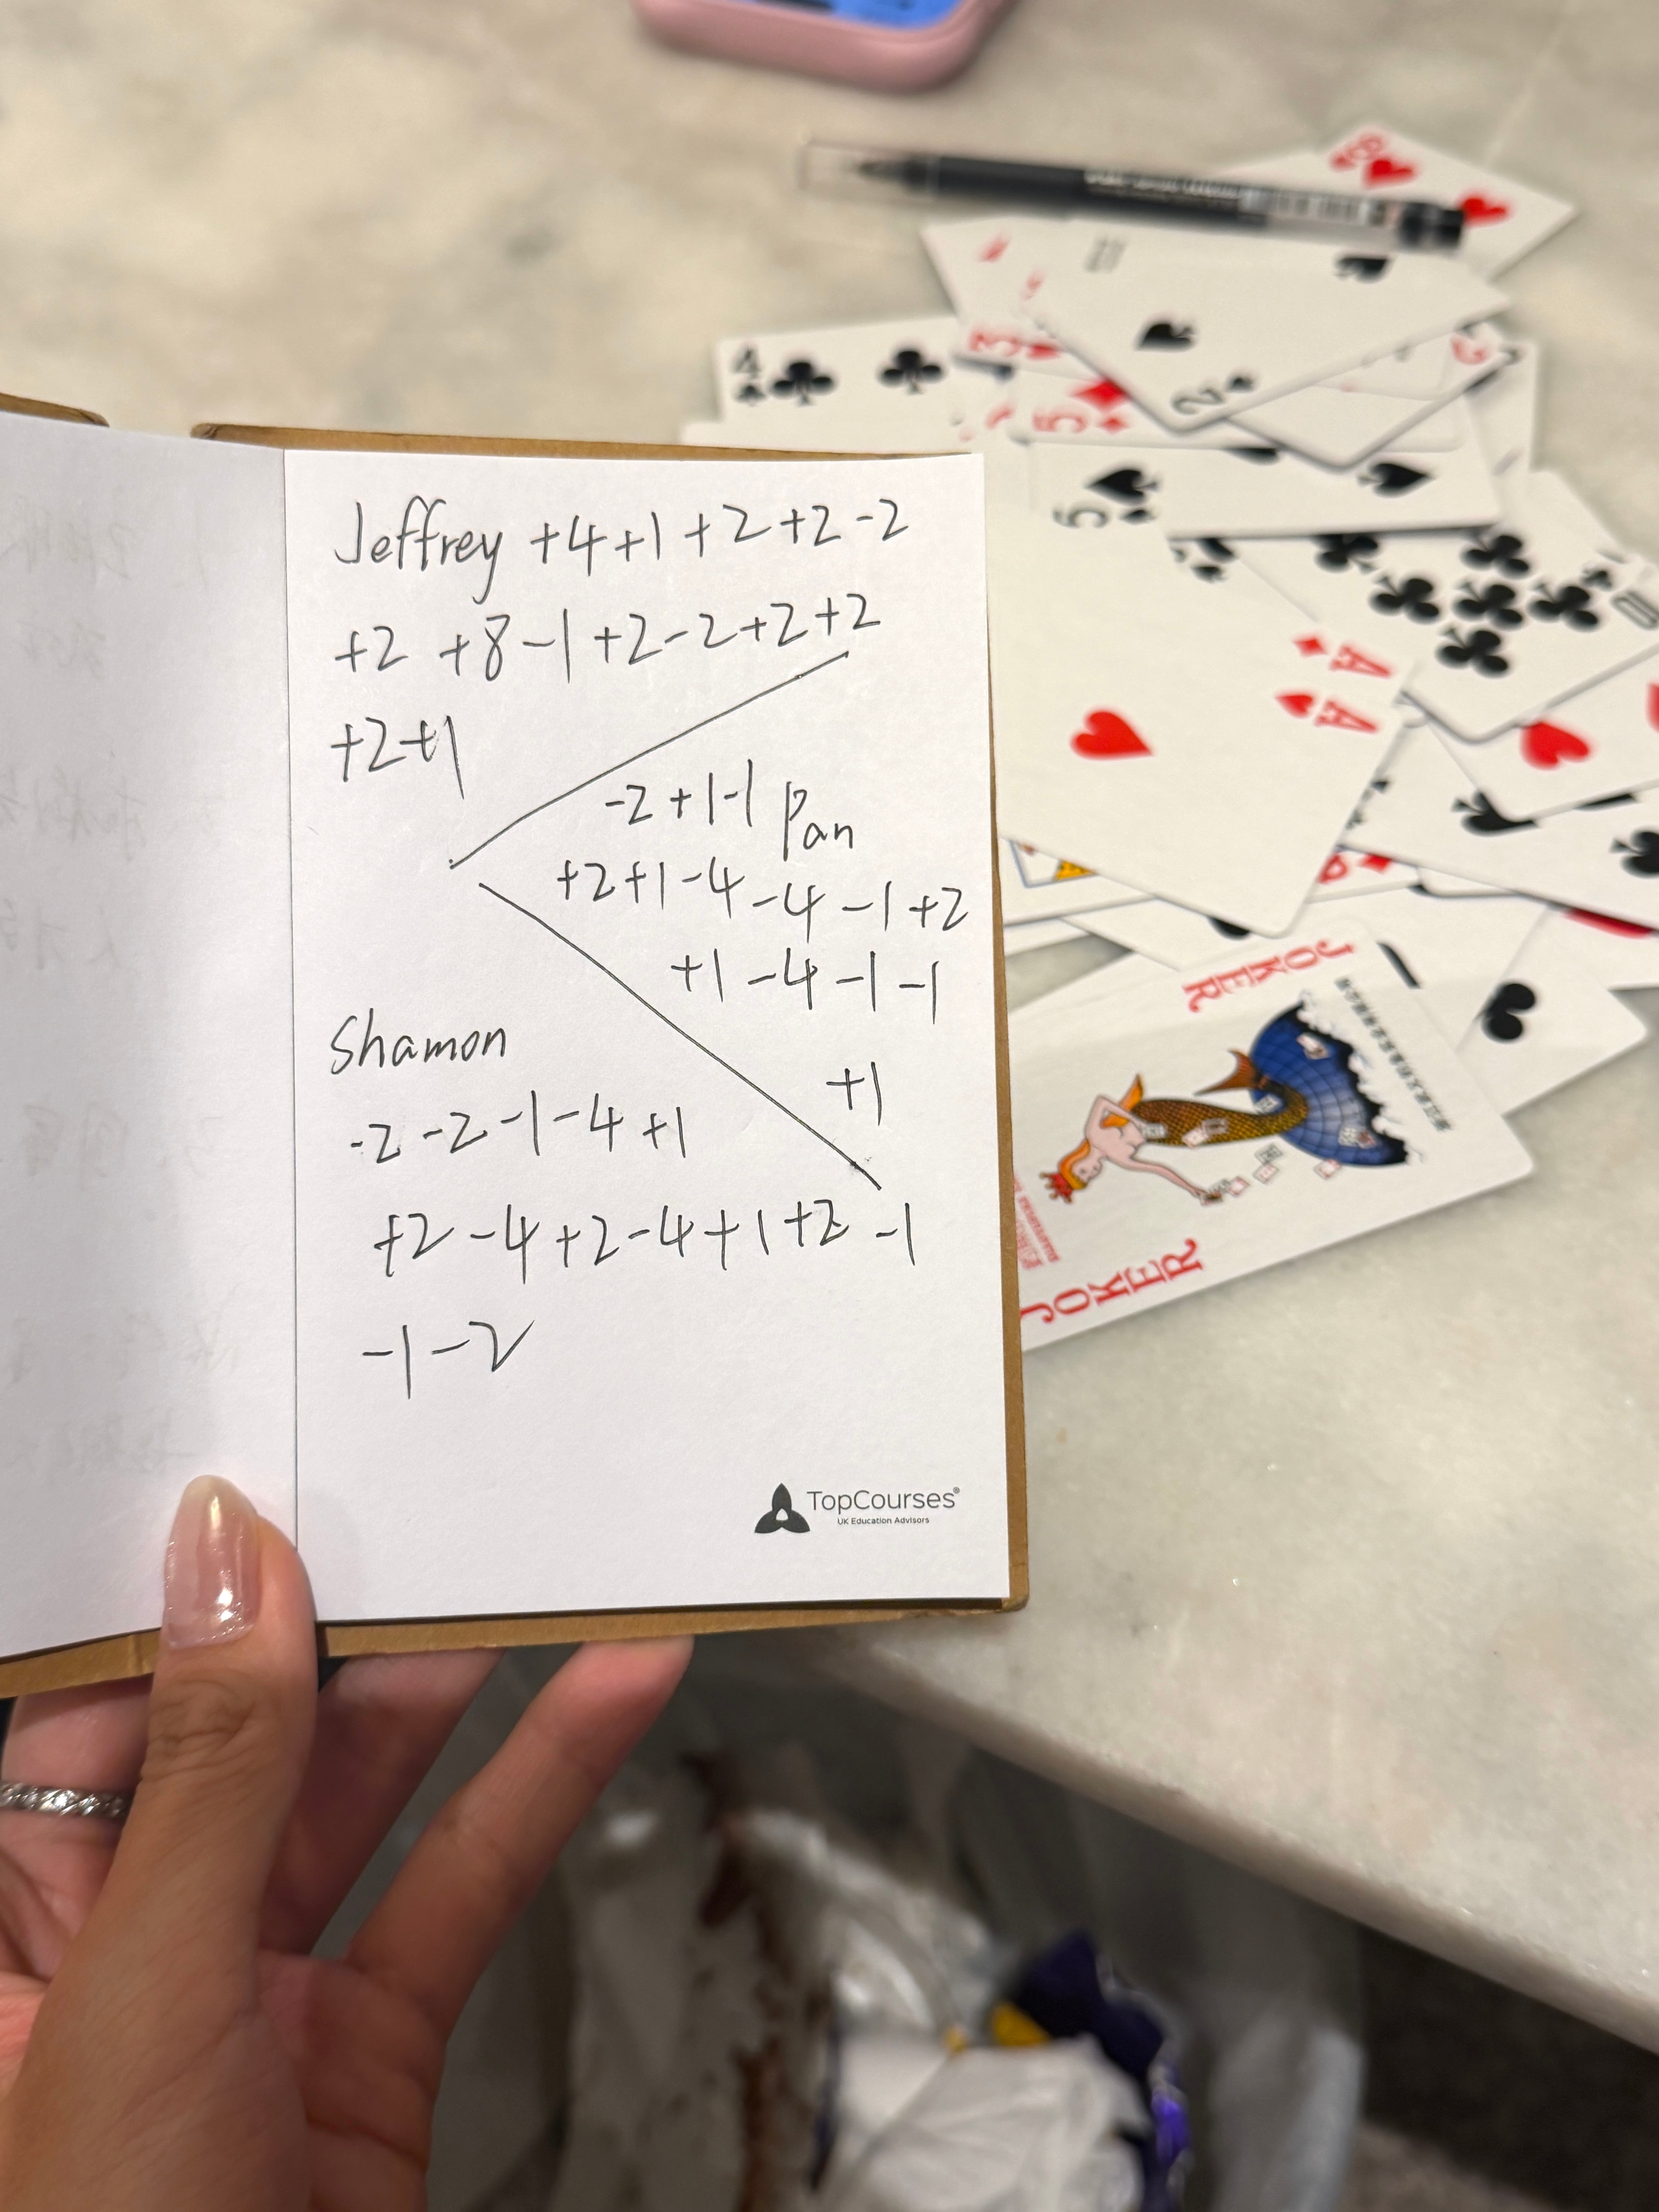 Jeffrey +4+1+2+2-2
+2 +8-1+2-2+2+2
+2+1
-2+1-1 Pan
+2+1-4-4-1+2
+1-4-1-1
+1
Shamon
-2-2-1-4+1
+2-4+2-4+1+2-1
-1-2
TopCourses®
UK Education Advisors
4
3
5
2
5
A
A
10
JOKER
JOKER